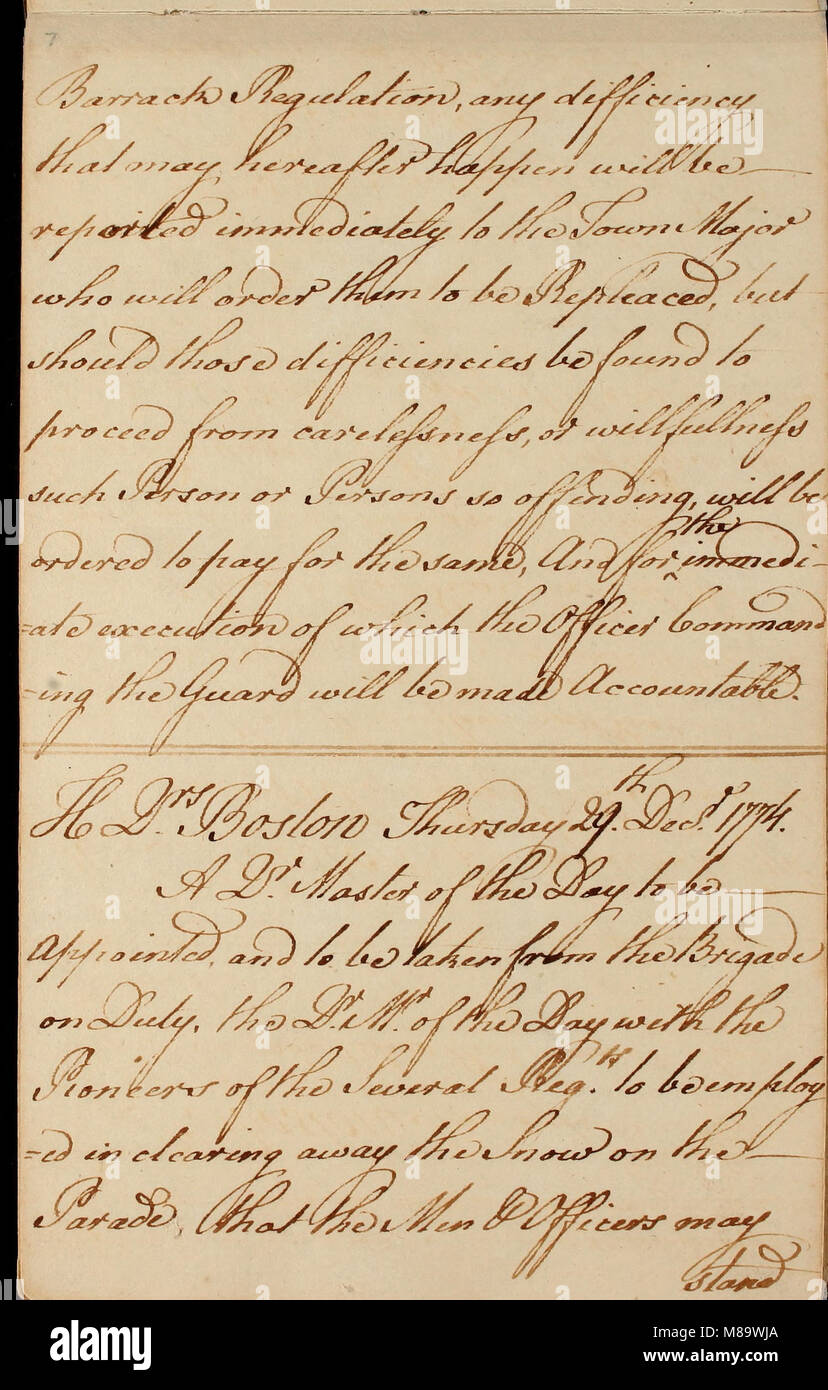 7
Barrack Regulation, any difficiency
that may hereafter happen will be —
reported immediately to the Town Major
who will order them to be Repleaced, but
should those difficiencies be found to
proceed from carelessness, or willfullness
such Person or Persons so offending, will be
ordered to pay for the same, And for ^the immedi-
=ate execution of which the Officer Command
=ing the Guard will be made Accountable.
H Qrs Boston Thursday 29th Decr 1774.
A Qr Master of the Day to be —
appointed, and to be taken from the Brigade
on Duty, the Qr Mr of the Day with the
Pioneers of the Several Regts to be employ
=ed in clearing away the Snow on the —
Parade, that the Men & Officers may
stand
alamy
Image ID: M89WJA
www.alamy.com